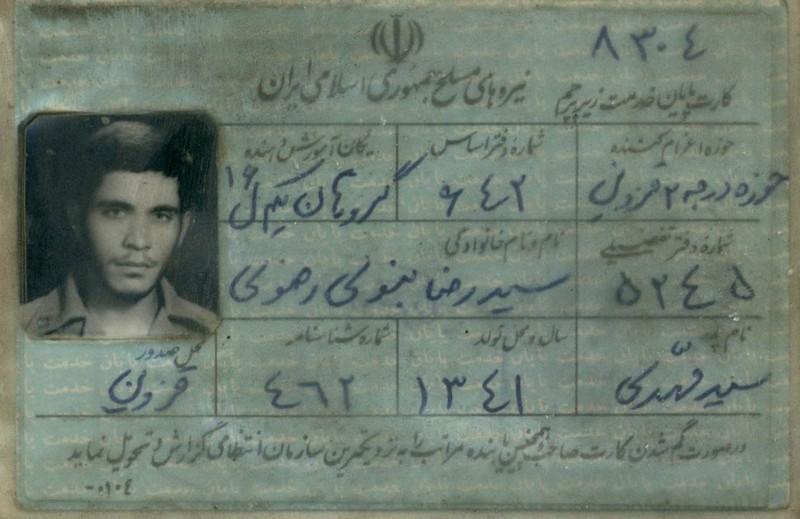 ۸۳۰۴
نیروهای مسلح جمهوری اسلامی ایران
کارت پایان خدمت زیر پرچم
حوزه اعزام کننده
شماره دفتر اساس
یگان آموزش دهنده
حوزه درجه ۲ قزوین
۶۴۲
گروهان یکم ل ۱۶
شماره دفتر تفضیلی
نام و نام خانوادگی
۵۲۴۵
سید رضا رضوی
نام پدر
سال و محل تولد
شماره شناسنامه
محل صدور
سید مهدی
۱۳۴۱
۴۶۲
قزوین
درصورت گم شدن کارت صاحب و همچنین یابنده مراتب را به نزدیکترین سازمان انتظامی گزارش و تحویل نماید